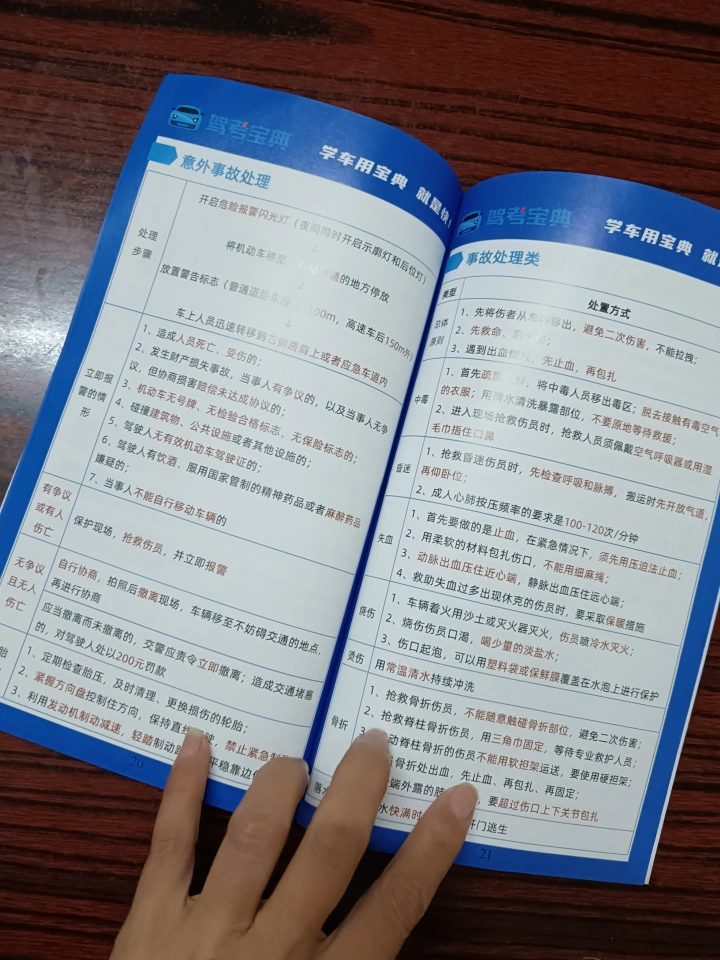 驾考宝典
学车用宝典 就是快!
意外事故处理
处理
步骤
开启危险报警闪光灯（夜间同时开启示廓灯和后位灯）
将机动车移至 的地方停放
放置警告标志（普通道路车后 100m，高速车后150m外）
车上人员迅速转移到右侧路肩上或者应急车道内
立即报
警的情
形
1、造成人员死亡、受伤的；
2、发生财产损失事故，当事人有争议的，以及当事人无争
议，但协商损害赔偿未达成协议的；
3、机动车无号牌、无检验合格标志、无保险标志的；
4、碰撞建筑物、公共设施或者其他设施的；
5、驾驶人无有效机动车驾驶证的；
6、驾驶人有饮酒、服用国家管制的精神药品或者麻醉药品
嫌疑的；
7、当事人不能自行移动车辆的
有争议
或有人
伤亡
保护现场，抢救伤员，并立即报警
无争议
且无人
伤亡
自行协商，拍照后撤离现场，车辆移至不妨碍交通的地点，
再进行协商
应当撤离而未撤离的，交警应责令立即撤离；造成交通堵塞
的，对驾驶人处以200元罚款
胎
1、定期检查胎压，及时清理、更换损伤的轮胎；
2、紧握方向盘控制住方向，保持直线 驶，禁止紧急制
3、利用发动机制动减速，轻踏制动 平稳靠边
20
驾考宝典
学车用宝典 就
事故处理类
类型
处置方式
总体
原则
1、先将伤者从车 移出，避免二次伤害，不能拉拽；
2、先救命，
3、遇到出血 ，先止血，再包扎
中毒
1、首先 ，将中毒人员移出毒区；脱去接触有毒空气
的衣服；用清水清洗暴露部位，不要原地等待救援；
2、进入现场抢救伤员时，抢救人员须佩戴空气呼吸器或用湿
毛巾捂住口鼻
昏迷
1、抢救昏迷伤员时，先检查呼吸和脉搏，搬运时先开放气道，
再仰卧位；
2、成人心肺按压频率的要求是100-120次/分钟
失血
1、首先要做的是止血，在紧急情况下，须先用压迫法止血；
2、用柔软的材料包扎伤口，不能用细麻绳；
3、动脉出血压住近心端，静脉出血压住远心端；
4、救助失血过多出现休克的伤员时，要采取保暖措施
烧伤
1、车辆着火用沙土或灭火器灭火，伤员喷冷水灭火；
2、烧伤伤员口渴，喝少量的淡盐水；
3、伤口起泡，可以用塑料袋或保鲜膜覆盖在水泡上进行保护
烫伤
用常温清水持续冲洗
骨折
1、抢救骨折伤员，不能随意触碰骨折部位，避免二次伤害；
2、抢救脊柱骨折伤员，用三角巾固定，等待专业救护人员；
动脊柱骨折的伤员不能用软担架运送，要使用硬担架；
骨折处出血，先止血、再包扎、再固定；
端外露的肢 ，要超过伤口上下关节包扎
落水
水快满时 开门逃生
21